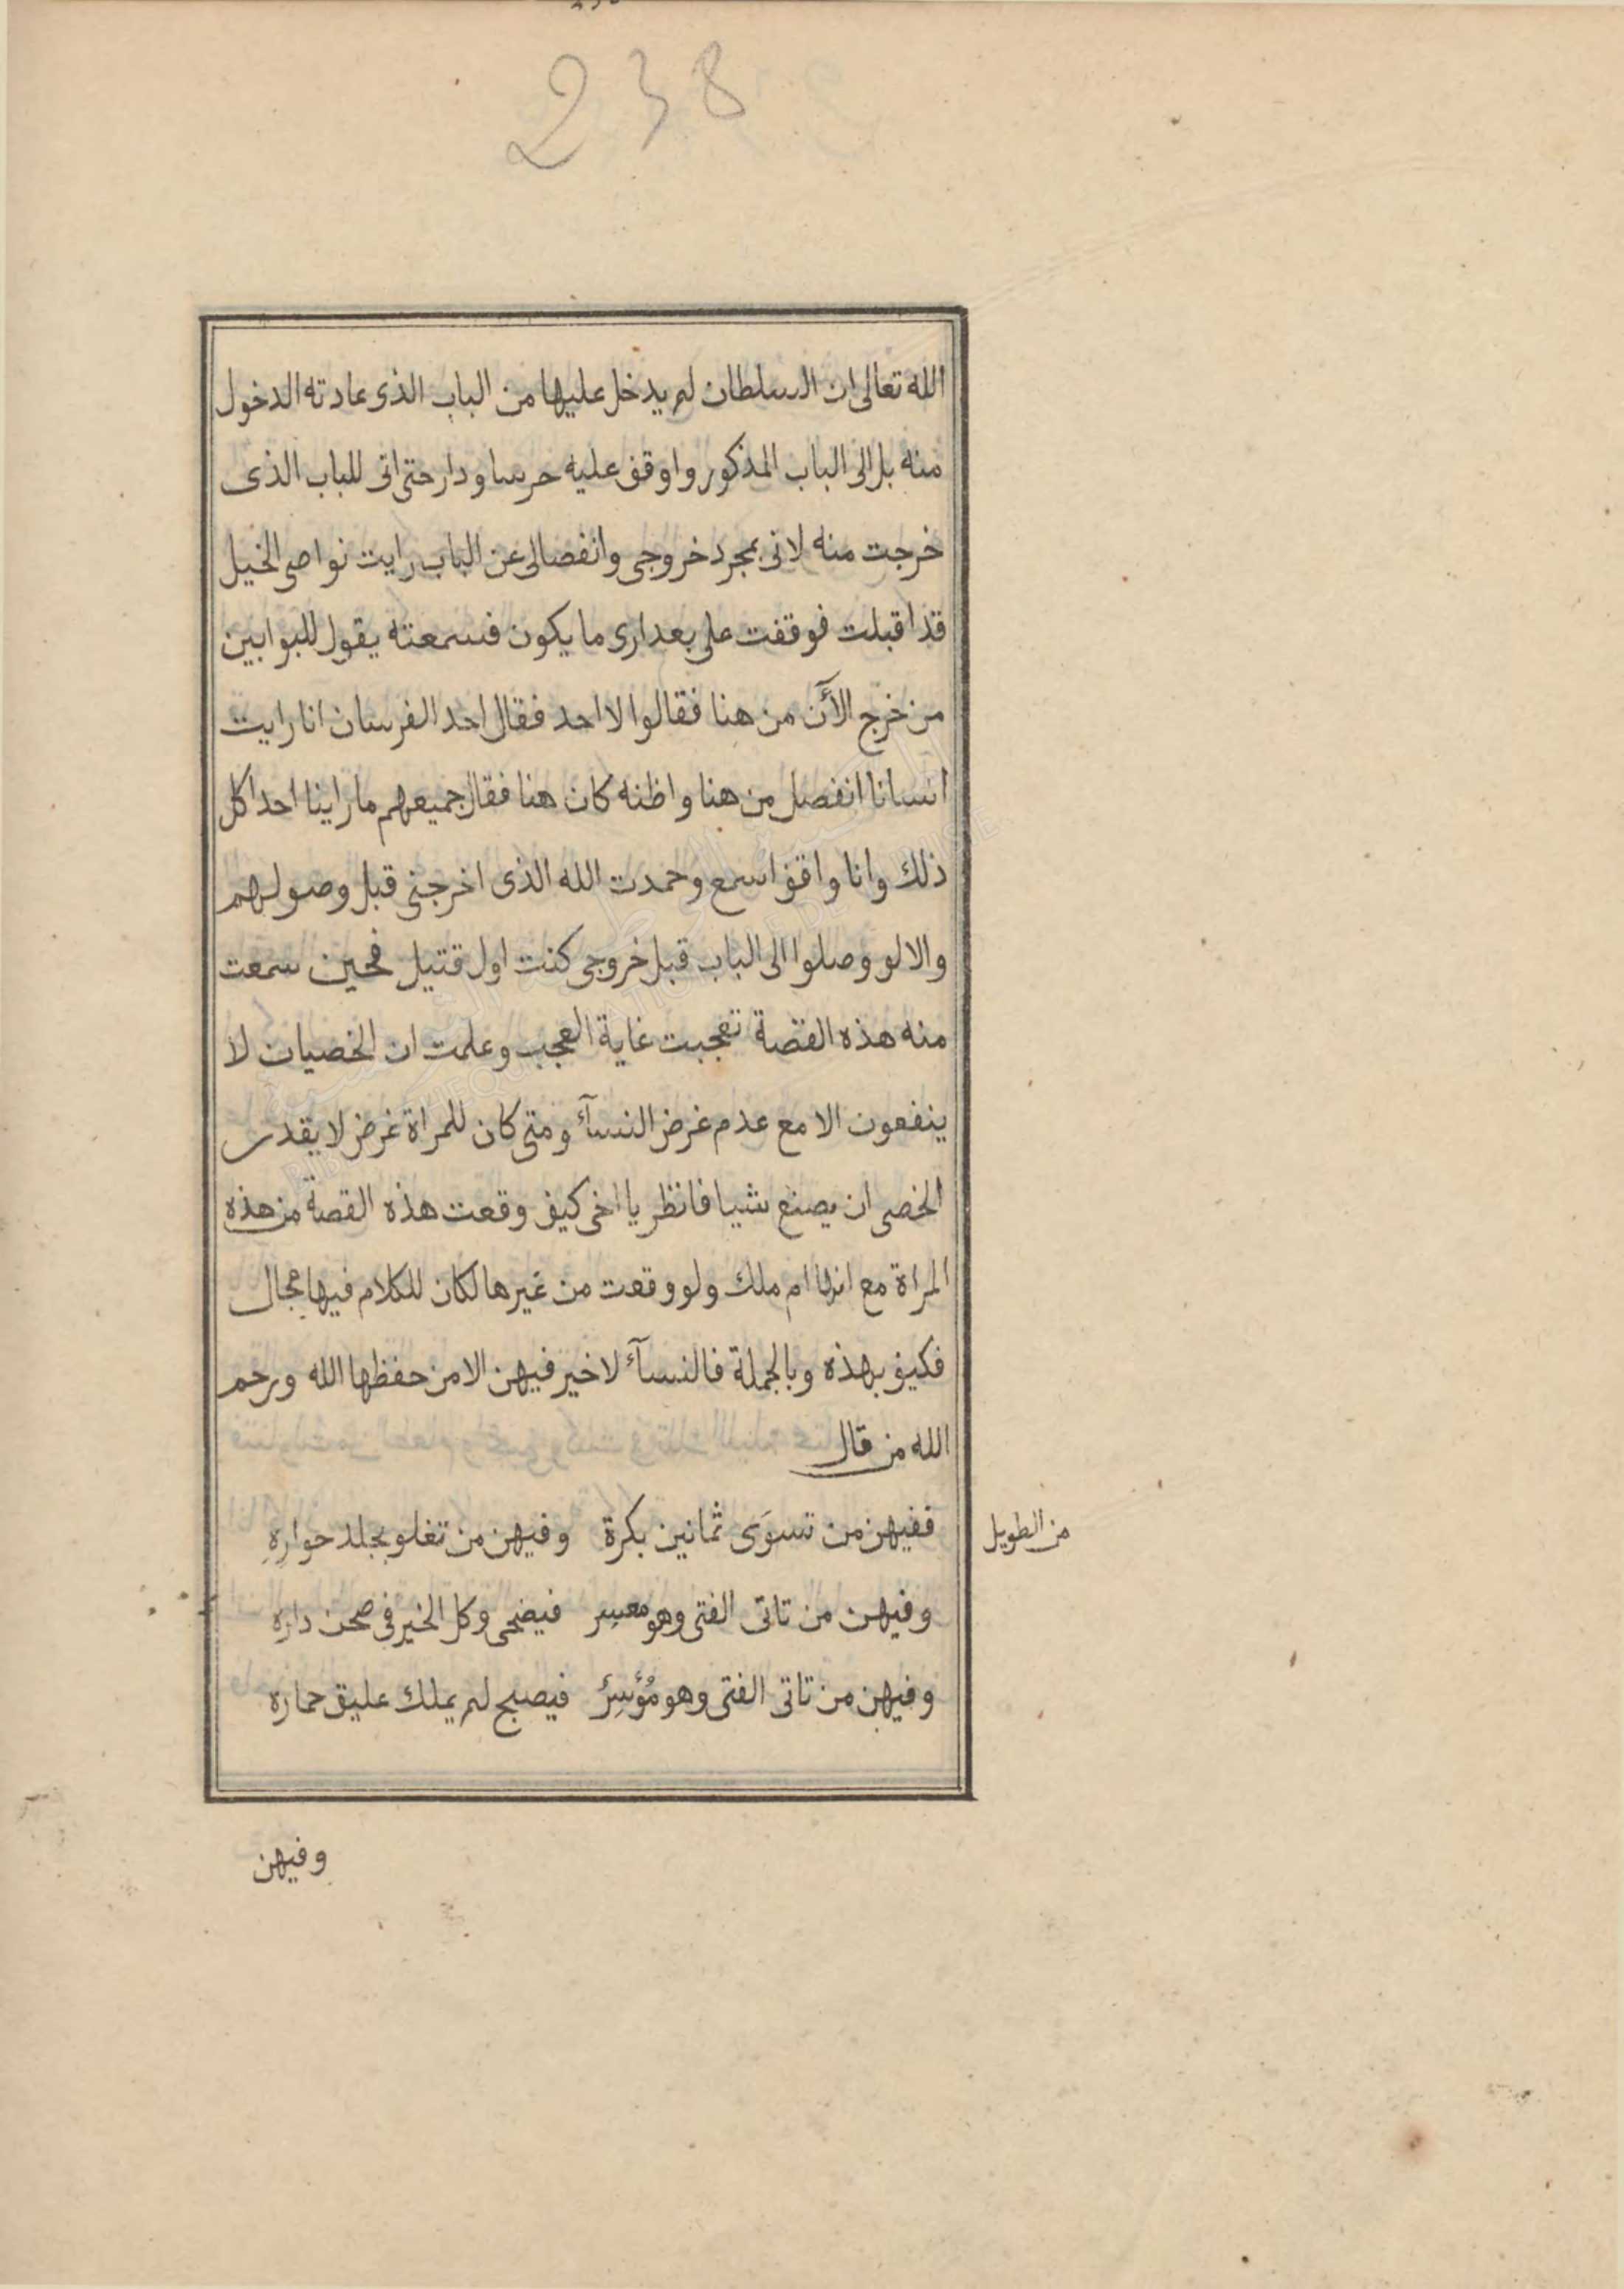 238
الله تعالى ان السلطان لم يدخل عليها من الباب الذى عادته الدخول
منه بل الى الباب المذكور واوقف عليه حرسا ودار حتى اتى للباب الذى
خرجت منه لانى بمجرد خروجى وانفصالى عن الباب رايت نواصى الخيل
قد اقبلت فوقفت على بعد ارى ما يكون فسمعته يقول للبوابين
من خرج الآن من هنا فقالوا لا احد فقال احد الفرسان انا رايت
انسانا انفصل من هنا واظنه كان هنا فقال جميعهم ما راينا احدا كل
ذلك وانا واقف اسمع وحمدت الله الذى اخرجنى قبل وصولهم
والا لو وصلوا الى الباب قبل خروجى كنت اول قتيل فحين سمعت
منه هذه القصة تعجبت غاية العجب وعلمت ان الخصيان لا
ينفعون الا مع عدم غرض النسآء ومتى كان للمراة غرض لا يقدر
الخصى ان يصنع شيا فانظر يا اخى كيف وقعت هذه القصة من هذه
المراة مع انها ام ملك ولو وقعت من غيرها لكان للكلام فيها مجال
فكيف بهذه وبالجملة فالنسآء لا خير فيهن الا من حفظها الله ورحم
الله من قال
من الطويل
ففيهن من تسوَى ثمانين بكرة وفيهن من تغلو بجلد حوارِهِ
وفيهن من تاتى الفتى وهو معسِر فيضحى وكل الخير فى صحن داره
وفيهن من تاتى الفتى وهو مُؤسِرٌ فيصبح لم يملك عليق حماره
وفيهن